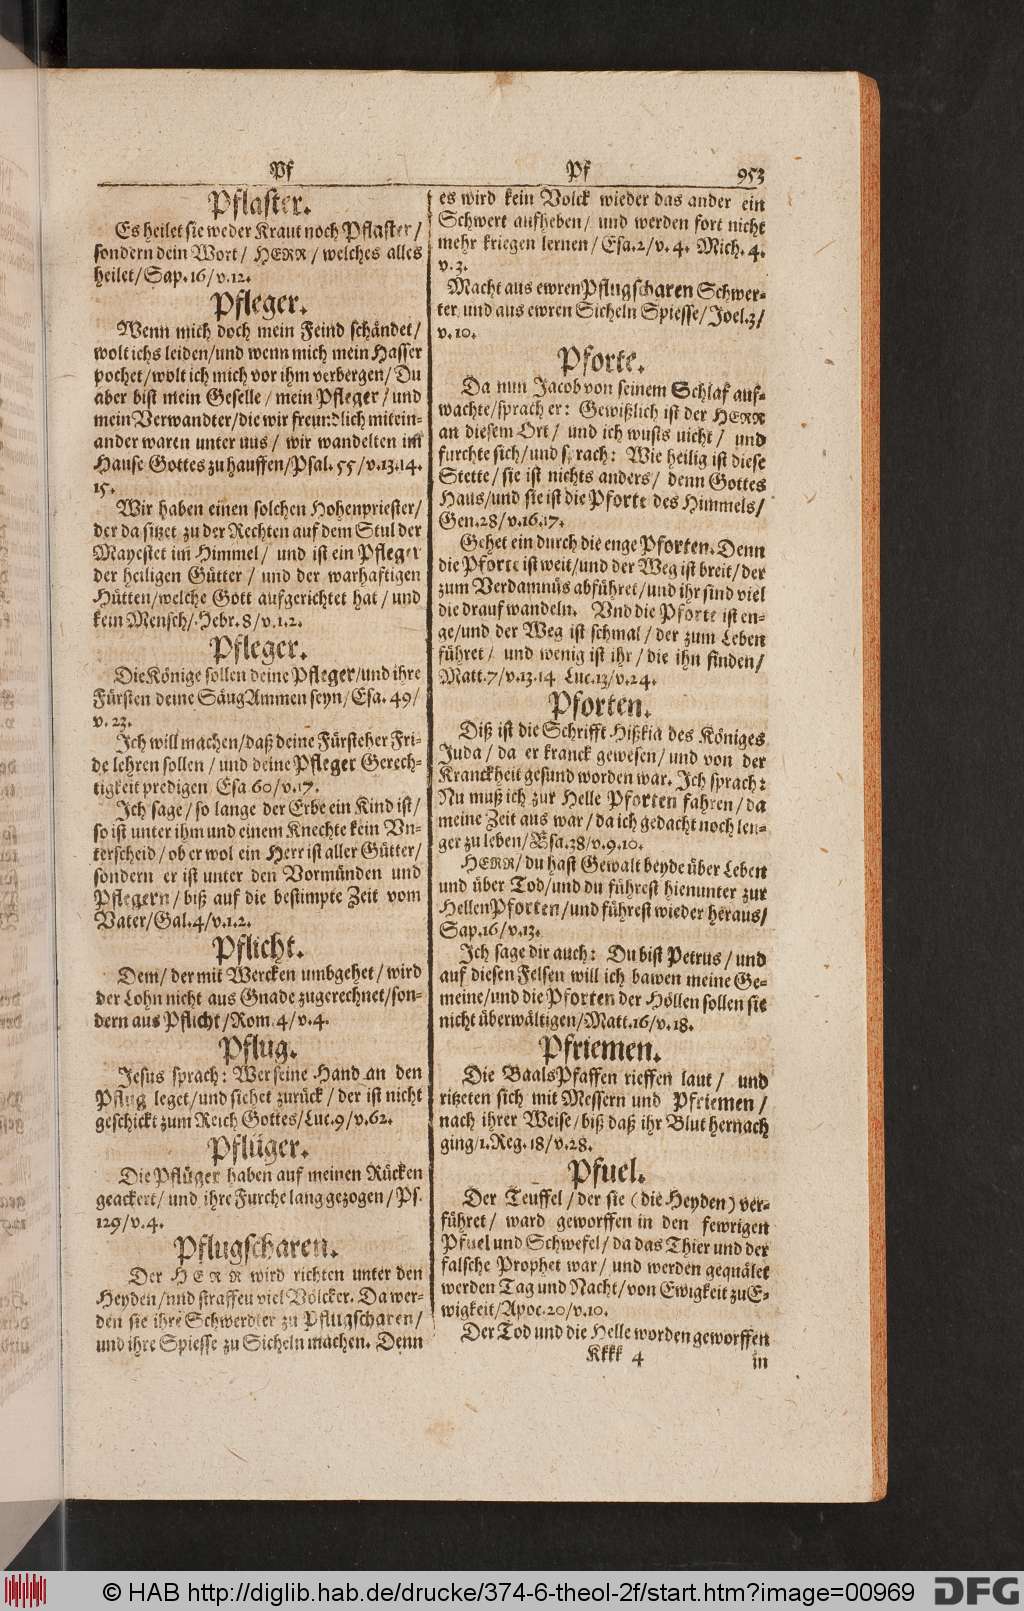 Pf
Pf
953
Pflaster.
Es heilet sie weder Kraut noch Pflaster/
sondern dein Wort/ HERR/ welches alles
heilet/Sap. 16/v.12.
Pfleger.
Wenn mich doch mein Feind schändet/
wolt ichs leiden/und wenn mich mein Hasser
pochet/wolt ich mich vor ihm verbergen/ Du
aber bist mein Geselle/mein Pfleger/und
mein Verwandter/die wir freundlich mitein-
ander waren unter uns/ wir wandelten im
Hause Gottes zu hauffen/Psal. 55/v.13.14.
15.
Wir haben einen solchen Hohenpriester/
der da sitzet zu der Rechten auf dem Stul der
Mayestet im Himmel/ und ist ein Pfleger
der heiligen Gütter/ und der warhaftigen
Hütten/welche Gott aufgerichtet hat/und
kein Mensch/Hebr. 8/v.1.2.
Pfleger.
Die Könige sollen deine Pfleger/und ihre
Fürsten deine SäugAmmen seyn/Esa. 49/
v. 23.
Ich will machen/daß deine Fürsteher Fri-
de lehren sollen/und deine Pfleger Gerech-
tigkeit predigen Esa 60/v.17.
Ich sage/so lange der Erbe ein Kind ist/
so ist unter ihm und einem Knechte kein Vn-
terscheid/ob er wol ein Herr ist aller Gütter/
sondern er ist unter den Vormünden und
Pflegern/biß auf die bestimpte Zeit vom
Vater/Gal.4/v.1.2.
Pflicht.
Dem/der mit Wercken umbgehet/wird
der Lohn nicht aus Gnade zugerechnet/son-
dern aus Pflicht/Rom. 4/v.4.
Pflug.
Jesus sprach: Wer seine Hand an den
Pflug leget/und siehet zurück/der ist nicht
geschickt zum Reich Gottes/Luc.9/v.62.
Pflüger.
Die Pflüger haben auf meinen Rücken
geackert/und ihre Furche lang gezogen/Ps.
129/v.4.
Pflugscharen.
Der HERR wird richten unter den
Heyden/und straffen viel Völcker. Da wer-
den sie ihre Schwerdter zu Pflugscharen/
und ihre Spiesse zu Sicheln machen. Denn
es wird kein Volck wieder das ander ein
Schwert aufheben/ und werden fort nicht
mehr kriegen lernen/Esa.2/v.4. Mich. 4.
v.3.
Macht aus ewren Pflugscharen Schwer-
ter und aus ewren Sicheln Spiesse/Joel.3/
v.10.
Pforte.
Da nun Jacob von seinem Schlaf auf-
wachte/sprach er: Gewißlich ist der HERR
an diesem Ort/ und ich wusts nicht/ und
furchte sich/und sprach: Wie heilig ist diese
Stette/ sie ist nichts anders/ denn Gottes
Haus/und sie ist die Pforte des Himmels/
Gen.28/v.16.17.
Gehet ein durch die enge Pforten. Denn
die Pforte ist weit/und der Weg ist breit/der
zum Verdamnüs abführet/und ihr sind viel
die drauf wandeln. Vnd die Pforte ist en-
ge/und der Weg ist schmal/der zum Leben
führet/ und wenig ist ihr/die ihn finden/
Matt.7/v.13.14 Luc.13/v.24.
Pforten.
Diß ist die Schrifft Hißkia des Königes
Juda/da er kranck gewesen/und von der
Kranckheit gesund worden war. Ich sprach:
Nu muß ich zur Helle Pforten fahren/da
meine Zeit aus war/da ich gedacht noch len-
ger zu leben/Esa.38/v.9.10.
HERR/du hast Gewalt beyde über Leben
und über Tod/und du führest hienunter zur
Hellen Pforten/und führest wieder heraus/
Sap.16/v.13.
Ich sage dir auch: Du bist Petrus/und
auf diesen Felsen will ich bawen meine Ge-
meine/und die Pforten der Höllen sollen sie
nicht überwältigen/Matt.16/v.18.
Pfriemen.
Die BaalsPfaffen rieffen laut/ und
ritzeten sich mit Messern und Pfriemen/
nach ihrer Weise/biß daß ihr Blut hernach
ging/1.Reg.18/v.28.
Pfuel.
Der Teuffel/der sie (die Heyden) ver-
führet/ ward geworffen in den fewrigen
Pfuel und Schwefel/da das Thier und der
falsche Prophet war/ und werden gequälet
werden Tag und Nacht/von Ewigkeit zu E-
wigkeit/Apoc.20/v.10.
Der Tod und die Helle worden geworffen
Kkkk 4
in
© HAB http://diglib.hab.de/drucke/374-6-theol-2f/start.htm?image=00969
DFG